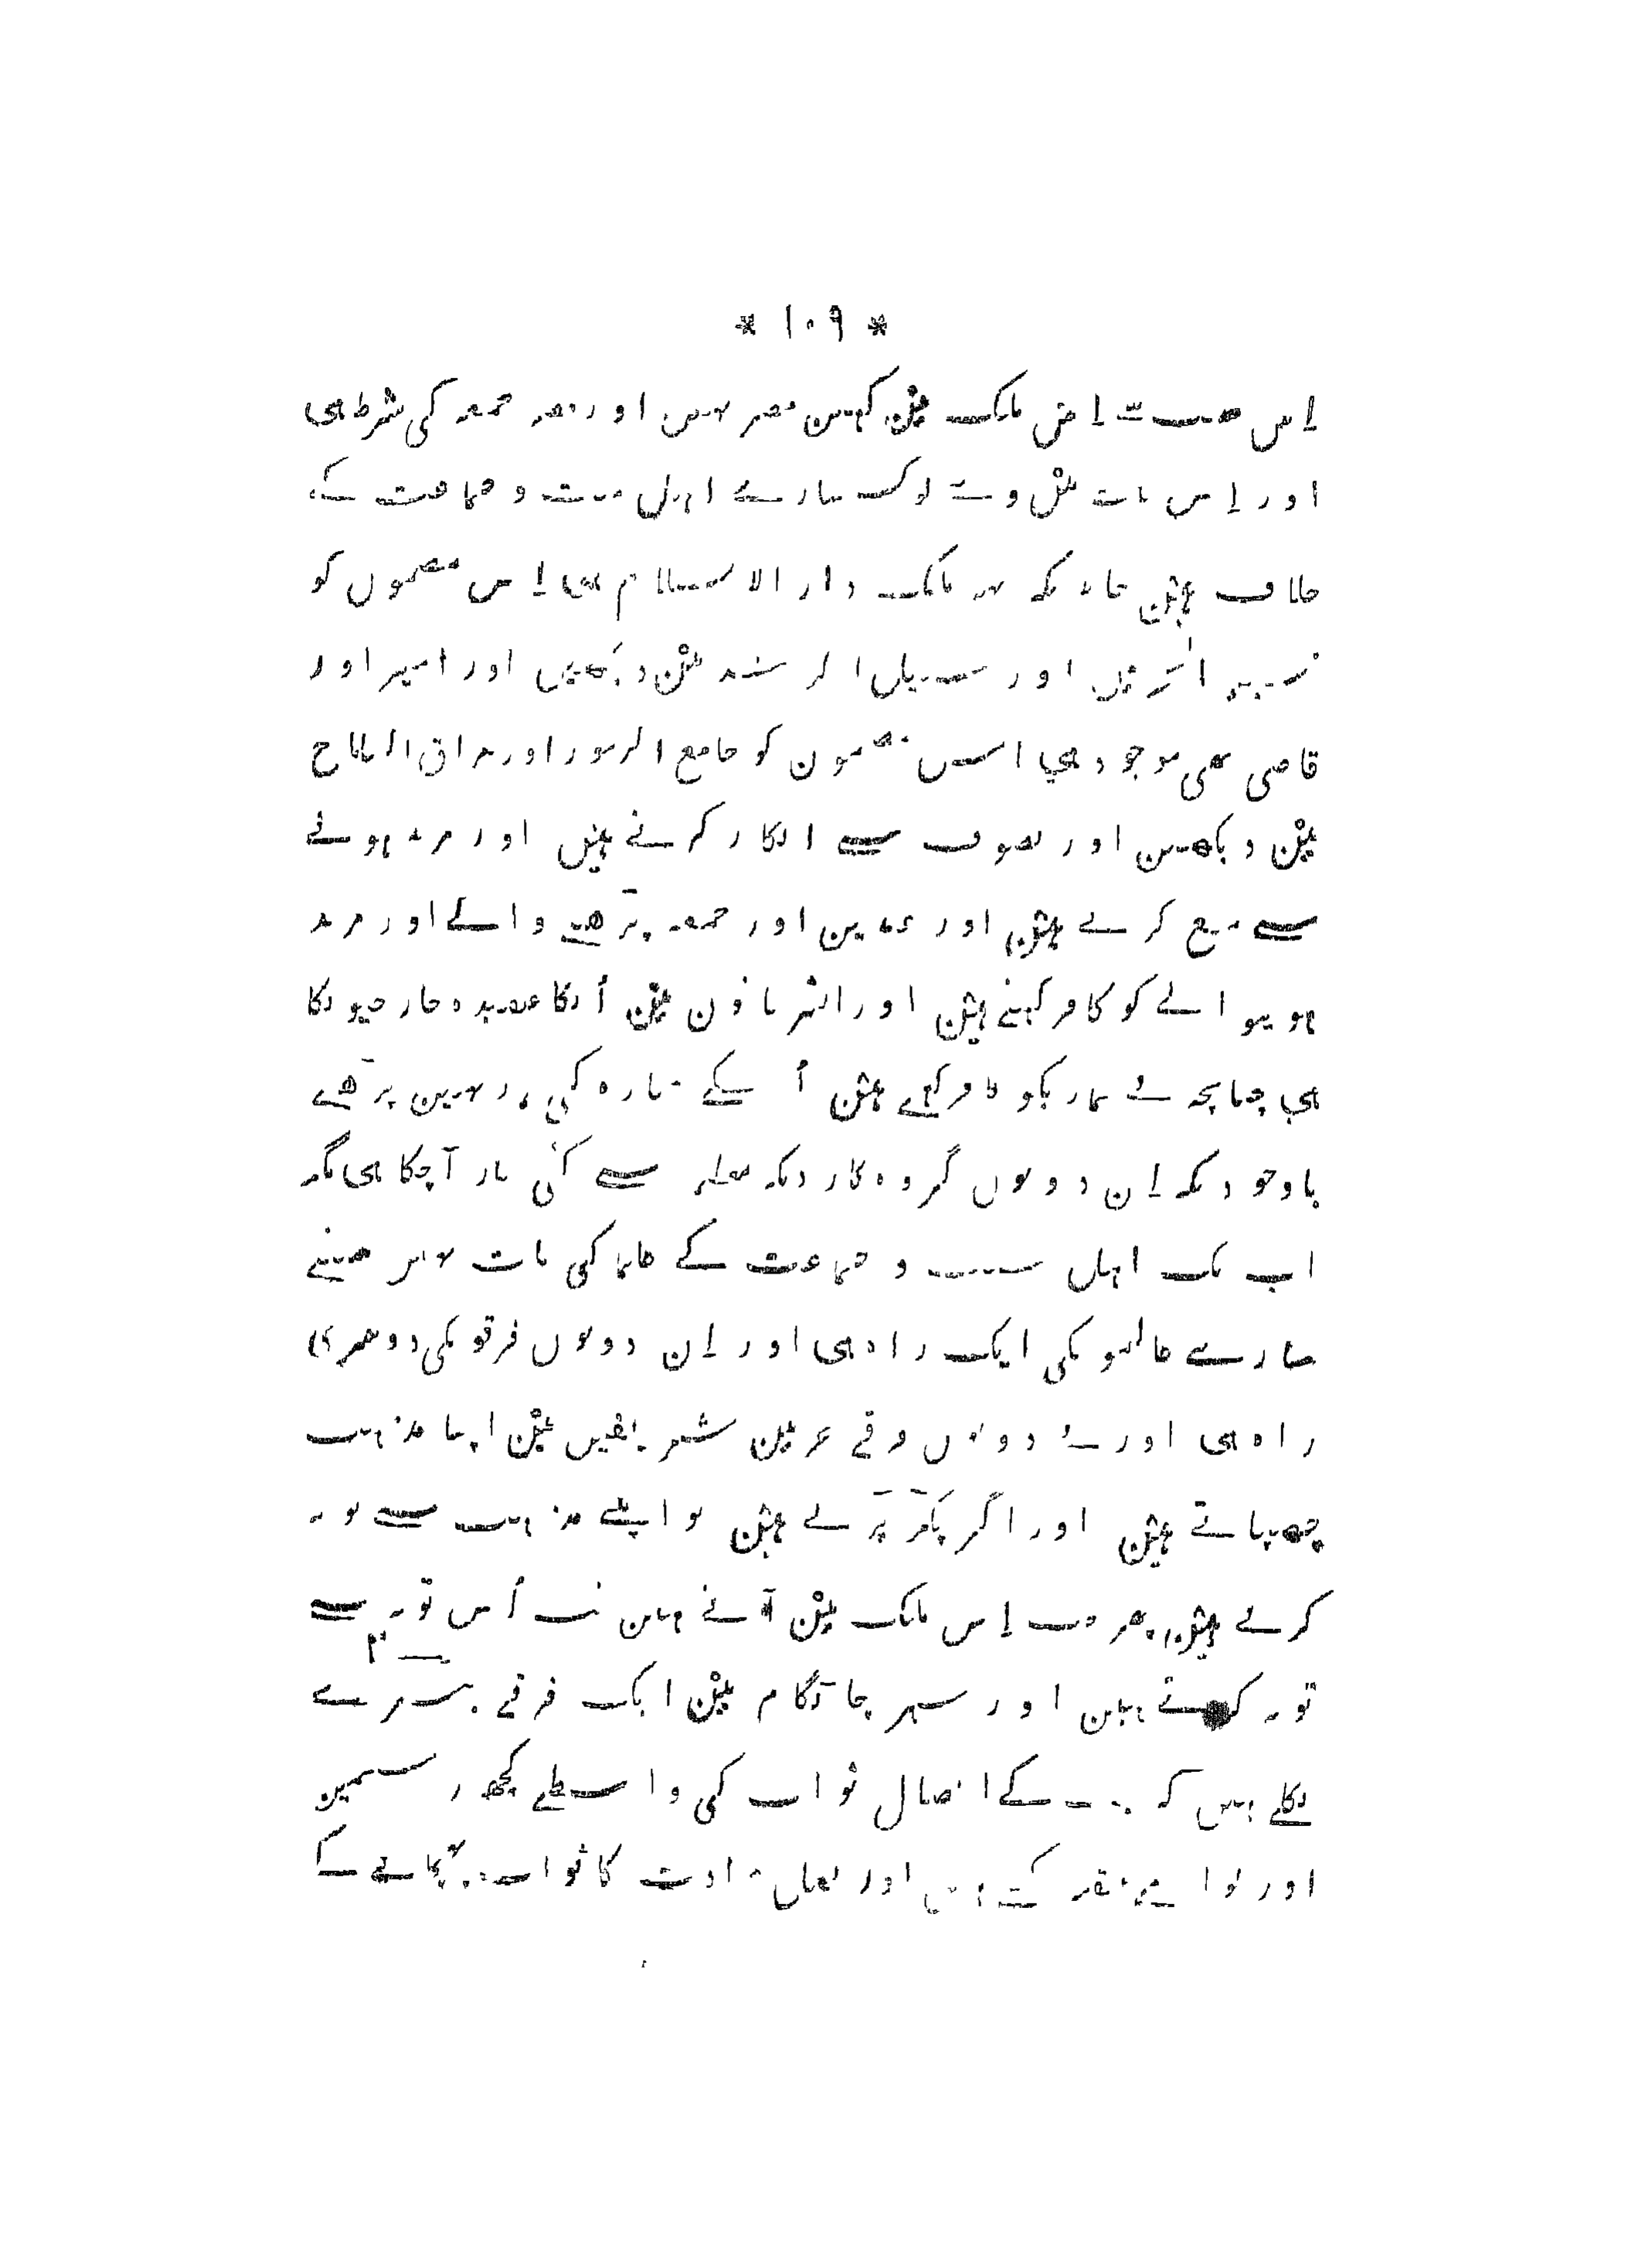 * ۱۰۹ *
اِس اِس ملک مین کہین مصر نہین اور مصر جمعہ کی شرط ہی
اور اِس بات مین وے لوگ سارے اہل سنت و جماعت کے
خلاف ہین کہ یہ ملک دار الاسلام ہی اِس مضمون کو
اور مین دیکھین اور امیر اور
قاضی بھی موجود ہی اس مضمون کو جامع الرموز اور مراقی الفلاح
مین دیکھین اور تصوف سے انکار کرتے ہین اور مرید ہونے
سے منع کرتے ہین اور عیدین اور جمعہ پڑھنے والے اور مرید
ہونیوالے کو کافر کہتے ہین اور اکثر باتون مین اُنکا عقیدہ خارجیونکا
ہی چنانچہ بے نمازیکو کافر کہتے ہین اُسکے جنازہ کی نہین پڑھتے
باوجودیکہ اِن دونوں گروہ کا رد مکہ معظمہ سے کئی بار آچکا ہی مگر
اب تک اہل سنت و جماعت کے علما کی بات نہین سنتے
سارے عالمونکی ایک راہ ہی اور اِن دونوں فرقونکی دوسری
راہ ہی اور یے دونوں فرقے حرمین شریفین مین اپنا مذہب
چھپاتے ہین اور اگر پکڑ پڑتے ہین تو اپنے مذہب سے توبہ
کرتے ہین پھر جب اِس ملک مین آتے ہین تب اُس توبہ سے
توبہ کرتے ہین اور شہر چاٹگام مین ایک فرقے
نکلے ہین کہ میت کے ایصال ثواب کی واسطے کچھ رسمین
اور مقرر کئے ہین اور عبادت کا ثواب پہنچانے کے